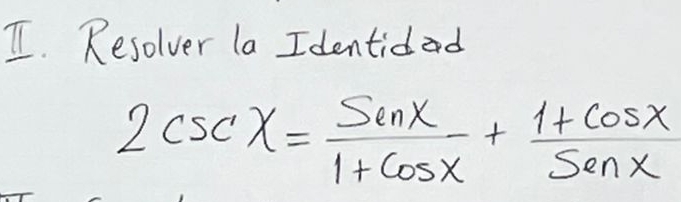 II. Resolver la Identidad
2 csc X = Sen X / 1 + Cos X + 1 + Cos X / Sen X